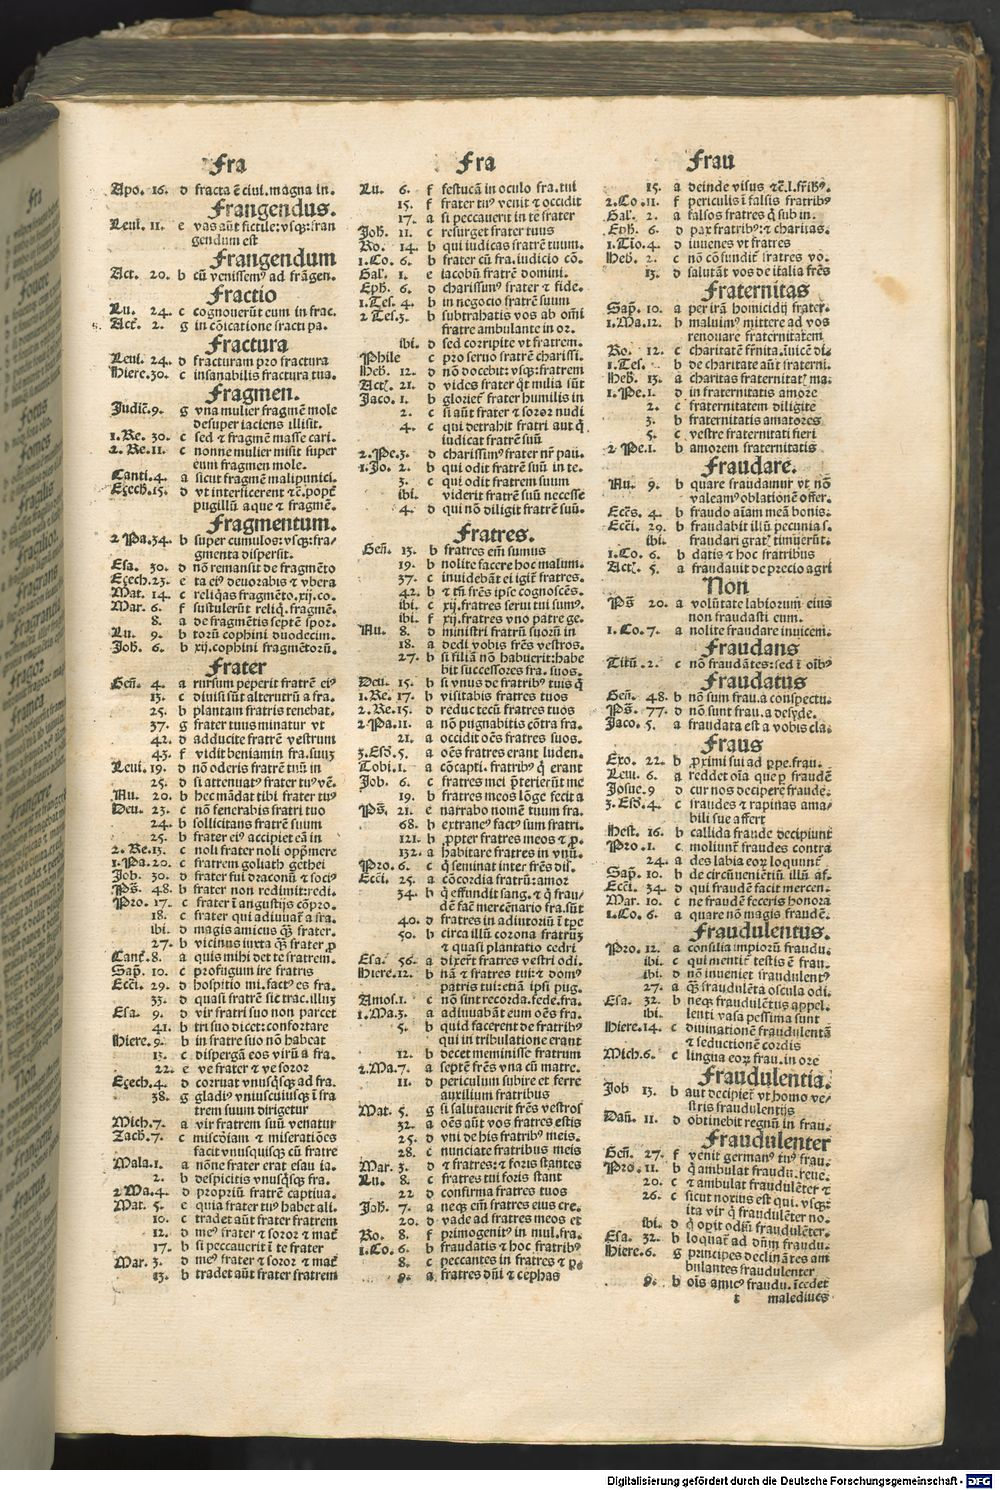 Fra
Apo. 16. d fracta ē ciui. magna in.
Frangendus.
Leui. 11. e vas aūt fictile: vsqꝫ: fran
gendum est
Frangendum
Act. 20. b cū venissemꝰ ad frāgen.
Fractio
Lu. 24. c cognouerūt eum in frac.
Act. 2. g in cōicatione fracti pa.
Fractura
Leui. 24. d fracturam pro fractura
Hiere. 30. c insanabilis fractura tua.
Fragmen.
Judic̄. 9. g vna mulier fragmē mole
desuper iaciens illisit.
1. Re. 30. c sed ⁊ fragmē masse cari.
2. Re. 11. c nonne mulier misit super
eum fragmen mole.
Canti. 4. a sicut fragmē malipunici.
Ezech. 15. d vt interficerent ⁊c̄. popt̄
pugillū aque ⁊ fragmē.
Fragmentum.
2 Pa. 34. b super cumulos: vsqꝫ: fra/
gmenta dispersit.
Esa. 30. d nō remansit de fragmēto
Ezech. 23. e ta eiꝰ deuorabis ⁊ vbera
Mat. 14. c reliq̄as fragmēto. xij. co.
Mar. 6. f sustulerūt reliq̄. fragmē.
8. a de fragmētis septē spor.
Lu. 9. b torū cophini duodecim.
Joh̄. 6. b xij. cophini fragmētorū.
Frater
Gen̄. 4. a rursum peperit fratrē eiꝰ
13. c diuisi sūt alterutrū a fra.
25. b plantam fratris tenebat.
37. g frater tuus minatur vt
42. d adducite fratrē vestrum
43. f vidit beniamin fra. suuꝫ
Leui. 19. d nō oderis fratrē tuū in
25. d si attenuatꝰ frater tuꝰ vē.
Nu. 20. b hec mādat tibi frater tuꝰ
Deu. 23. c nō fenerabis fratri tuo
24. b sollicitans fratrē suum
25. b frater eiꝰ accipiet eā in
2. Re. 13. c noli frater noli opp̄mere
1. Pa. 20. c fratrem goliath gethei
Job. 30. d frater fui draconū ⁊ sociꝰ
Ps̄. 48. b frater non redimit: redi.
Pro. 17. c frater ī angustijs cōpro.
18. c frater qui adiuuat̄ a fra.
ibi. d magis amicus q̄ꝫ frater.
27. b vicinus iuxta q̄ꝫ frater ꝓ
Cant̄. 8. a quis mihi det te fratrem.
Sap̄. 10. c profugum ire fratris
Ecci. 29. d hospitio mi. factꝰ es fra.
33. d quasi fratrē sic trac. illuꝫ
Esa. 9. d vir fratri suo non parcet
41. b tri suo dicet: confortare
Hiere. 9. b in fratre suo nō habeat
13. c dispergā eos virū a fra.
22. e ve frater ⁊ ve soror
Ezech. 4. d corruat vnusq̄sqꝫ ad fra.
38. g gladiꝰ vniuscuiusqꝫ ī fra
trem suum dirigetur
Mich. 7. a vir fratrem suū venatur
Zach. 7. c misc̄diam ⁊ miseratiōes
facit vnusquisqꝫ cū fratre
Mala. 1. a nōne frater erat esau ia.
2. b despicitis vnusq̄sqꝫ fra.
2 Ma. 4. d propriū fratrē captiua.
Mat. 5. e quia frater tuꝰ habet ali.
10. c tradet aūt frater fratrem
12. d meꝰ frater ⁊ soror ⁊ mat̄
17. b si peccauerit ī te frater
Mar. 3. d meꝰ frater ⁊ soror ⁊ mat̄
13. b tradet aūt frater fratrem
Fra
Lu. 6. f festucā in oculo fra. tui
15. f frater tuꝰ venit ⁊ occidit
17. a si peccauerit in te frater
Joh̄. 11. c resurget frater tuus
Ro. 14. b qui iudicas fratrē tuum.
1. Co. 6. b frater cū fra. iudicio cō.
Gal. 1. e iacobū fratrē domini.
Eph̄. 6. d charissimꝰ frater ⁊ fide.
1. Tes. 4. b in negocio fratrē suum
2 Tes. 3. b subtrahatis vos ab om̄i
fratre ambulante in or.
ibi. d sed corripite vt fratrem.
Phile c pro seruo fratrē charissi.
Heb̄. 12. d nō docebit: vsqꝫ: fratrem
Act̄. 21. d vides frater q̄t milia sūt
Jaco. 1. b gloriet̄ frater humilis in
2. c si aūt frater ⁊ soror nudi
4. c qui detrahit fratri aut q̄
iudicat fratrē suū
2. Pe. 3. d charissimꝰ frater nr̄ pau.
1. Jo. 2. b qui odit fratrē suū in te.
3. c qui odit fratrem suum
ibi. viderit fratrē suū necesse
4. d qui nō diligit fratrē suū.
Fratres.
Gen̄. 13. b fratres em̄ sumus
19. b nolite facere hoc malum.
37. c inuidebāt ei igit̄ fratres.
42. b ⁊ tn̄ fr̄es ipse cognoscēs.
ibi. c xij. fratres serui tui sumꝰ.
ibi. f xij. fratres vno patre ge.
Nu. 8. d ministri fratrū suorū in
18. a dedi vobis fr̄es vestros.
27. b si filiā nō habuerit: habe
bit successores fra. suos.
Deu. 15. b si vnus de fratribꝰ tuis q̄
1. Re. 17. b visitabis fratres tuos
2. Re. 15. d reduc tecū fratres tuos
2 Pa. 11. a nō pugnabitis cōtra fra.
21. a occidit oēs fratres suos.
3. Esd̄. 5. a oēs fratres erant luden.
Tobi. 1. a cōcapti. fratribꝰ q̄ erant
Job. 6. c fratres mei p̄terierūt me
19. b fratres meos lōge fecit a
Ps̄. 21. e narrabo nomē tuum fra.
68. b extraneꝰ factꝰ sum fratri.
121. b ꝓpter fratres meos ⁊ ꝓ.
132. a habitare fratres in vnū.
Pro. 6. c q̄ seminat inter fr̄es dis̄.
Ecci. 25. a cōcordia fratrū: amor
34. b q̄ effundit sang. ⁊ q̄ frau/
dē fac̄ mercēnario fra. sūt
40. d fratres in adiutoriū ī tp̄e
50. b circa illū corona fratruꝫ
⁊ quasi plantatio cedri
Esa. 56. a dixer̄t fratres vestri odi.
Hiere. 12. b nā ⁊ fratres tui: ⁊ domꝰ
patris tui: etiā ipsi pug.
Amos. 1. c nō sint recorda. fede. fra.
1. Ma. 3. a adiuuabāt eum oēs fra.
5. b quid facerent de fratribꝰ
qui in tribulatione erant
12. b decet meminisse fratrum
2. Ma. 7. a septē fr̄es vna cū matre.
11. d periculum subire et ferre
auxilium fratribus
Mat. 5. g si salutauerit fr̄es vestros
32. a oēs aūt vos fratres estis
25. d vni de his fratribꝰ meis.
28. c nunciate fratribus meis
Mar. 3. d ⁊ fratres: ⁊ foris stantes
Lu. 8. c fratres tui foris stant
22 d confirma fratres tuos
Joh̄. 7. a neqꝫ em̄ fratres eius cre.
20. d vade ad fratres meos et
Ro. 8. f primogenitꝰ in mul. fra.
1. Co. 6. b fraudatis ⁊ hoc fratribꝰ
8. c peccantes in fratres ⁊ ꝑ.
9. a fratres dn̄i ⁊ cephas
Frau
15. a deinde visus ⁊c̄. l. fr̄ibꝰ.
2. Co. 11. f periculis ī falsis fratribꝰ
Gal. 2. a falsos fratres q̄ sub in.
Eph. 6. d pax fratribꝰ: ⁊ charitas.
1. Tio. 4. d iuuenes vt fratres
Heb. 2. c nō cōfundit̄ fratres vo.
13. d salutāt vos de italia fr̄es
Fraternitas
Sap̄. 10. a per irā homicidij frater.
1. Ma. 12. b maluimꝰ mittere ad vos
renouare fraternitatem
Ro. 12. c charitatē fr̄nita. inuicē di.
1. Tes. b de charitate aūt fraterni.
Heb̄. 13. a charitas fraternitat̄ ma.
1. Pe. 1. d in fraternitatis amore
2. c fraternitatem diligite
3. b fraternitatis amatores
5. c vestre fraternitati fieri
2 Pe. 1. b amorem fraternitatis
Fraudare.
Nu. 9. b quare fraudamur vt nō
valeamꝰ oblationē offer.
Eccs̄. 4. b fraudo aīam meā bonis.
Ecci. 29. b fraudabit illū pecunia s.
ibi. fraudari grat̄ timuerūt.
1. Co. 6. b datis ⁊ hoc fratribus
Act̄. 5. a fraudauit de precio agri
Non
Ps̄ 20. a volūtate labiorum eius
non fraudasti eum.
1. Co. 7. a nolite fraudare inuicem.
Fraudans
Titū. 2. c nō fraudātes: sed ī oībꝰ
Fraudatus
Gen̄. 48. b nō sum frau. a conspectu.
Ps̄. 77. d nō sunt frau. a desyde.
Jaco. 5. a fraudata est a vobis cla.
Fraus
Exo. 22. b ꝓximi sui ad ꝑpe. frau.
Leui. 6. a reddet oīa que ꝑ fraudē
Josue. 9 d cur nos decipere fraude.
3. Esd̄. 4. c fraudes ⁊ rapinas ama/
bili sue affert
Hest. 16. b callida fraude decipiunt
Pro. 1. c moliunt̄ fraudes contra
24. a des labia eoꝝ loquunt̄
Sap̄. 10. b de circūueniētiū. illū af.
Ecci. 34. d qui fraudē facit mercen.
Mar. 10. c ne fraudē feceris honora
1. Co. 6. a quare nō magis fraudē.
Fraudulentus.
Pro. 12. a consilia impiorū fraudu.
ibi. c qui mentit̄ testis ē frau.
ibi. d nō inueniet fraudulentꝰ
27. a q̄ꝫ fraudulēta oscula odi.
Esa. 32. b neqꝫ fraudulētus appel.
ibi. lenti vasa pessima sunt
Hiere. 14. c diuinationē fraudulentā
⁊ seductionē cordis
Mich. 6. c lingua eoꝝ frau. in ore
Fraudulentia.
Job 13. b aut decipiet̄ vt homo ve/
stris fraudulentijs
Dan̄. 11. d obtinebit regnū in frau.
Fraudulenter
Gen̄. 27. f venit germanꝰ tuꝰ frau.
Pro. 11. b q̄ ambulat fraudu. reue.
20. c ⁊ ambulat fraudulēter ⁊
26. c sicut noxius est qui. vsqꝫ:
ita vir q̄ fraudulēter no.
ibi. d q̄ opit odiū fraudulēter.
Esa. 32. b loquat̄ ad dn̄m fraudu.
Hiere. 6. g principes declināt̄es am
bulantes fraudulenter
9. b ois amicꝰ fraudu. īcedet
t maledices
Digitalisierung gefördert durch die Deutsche Forschungsgemeinschaft - DFG